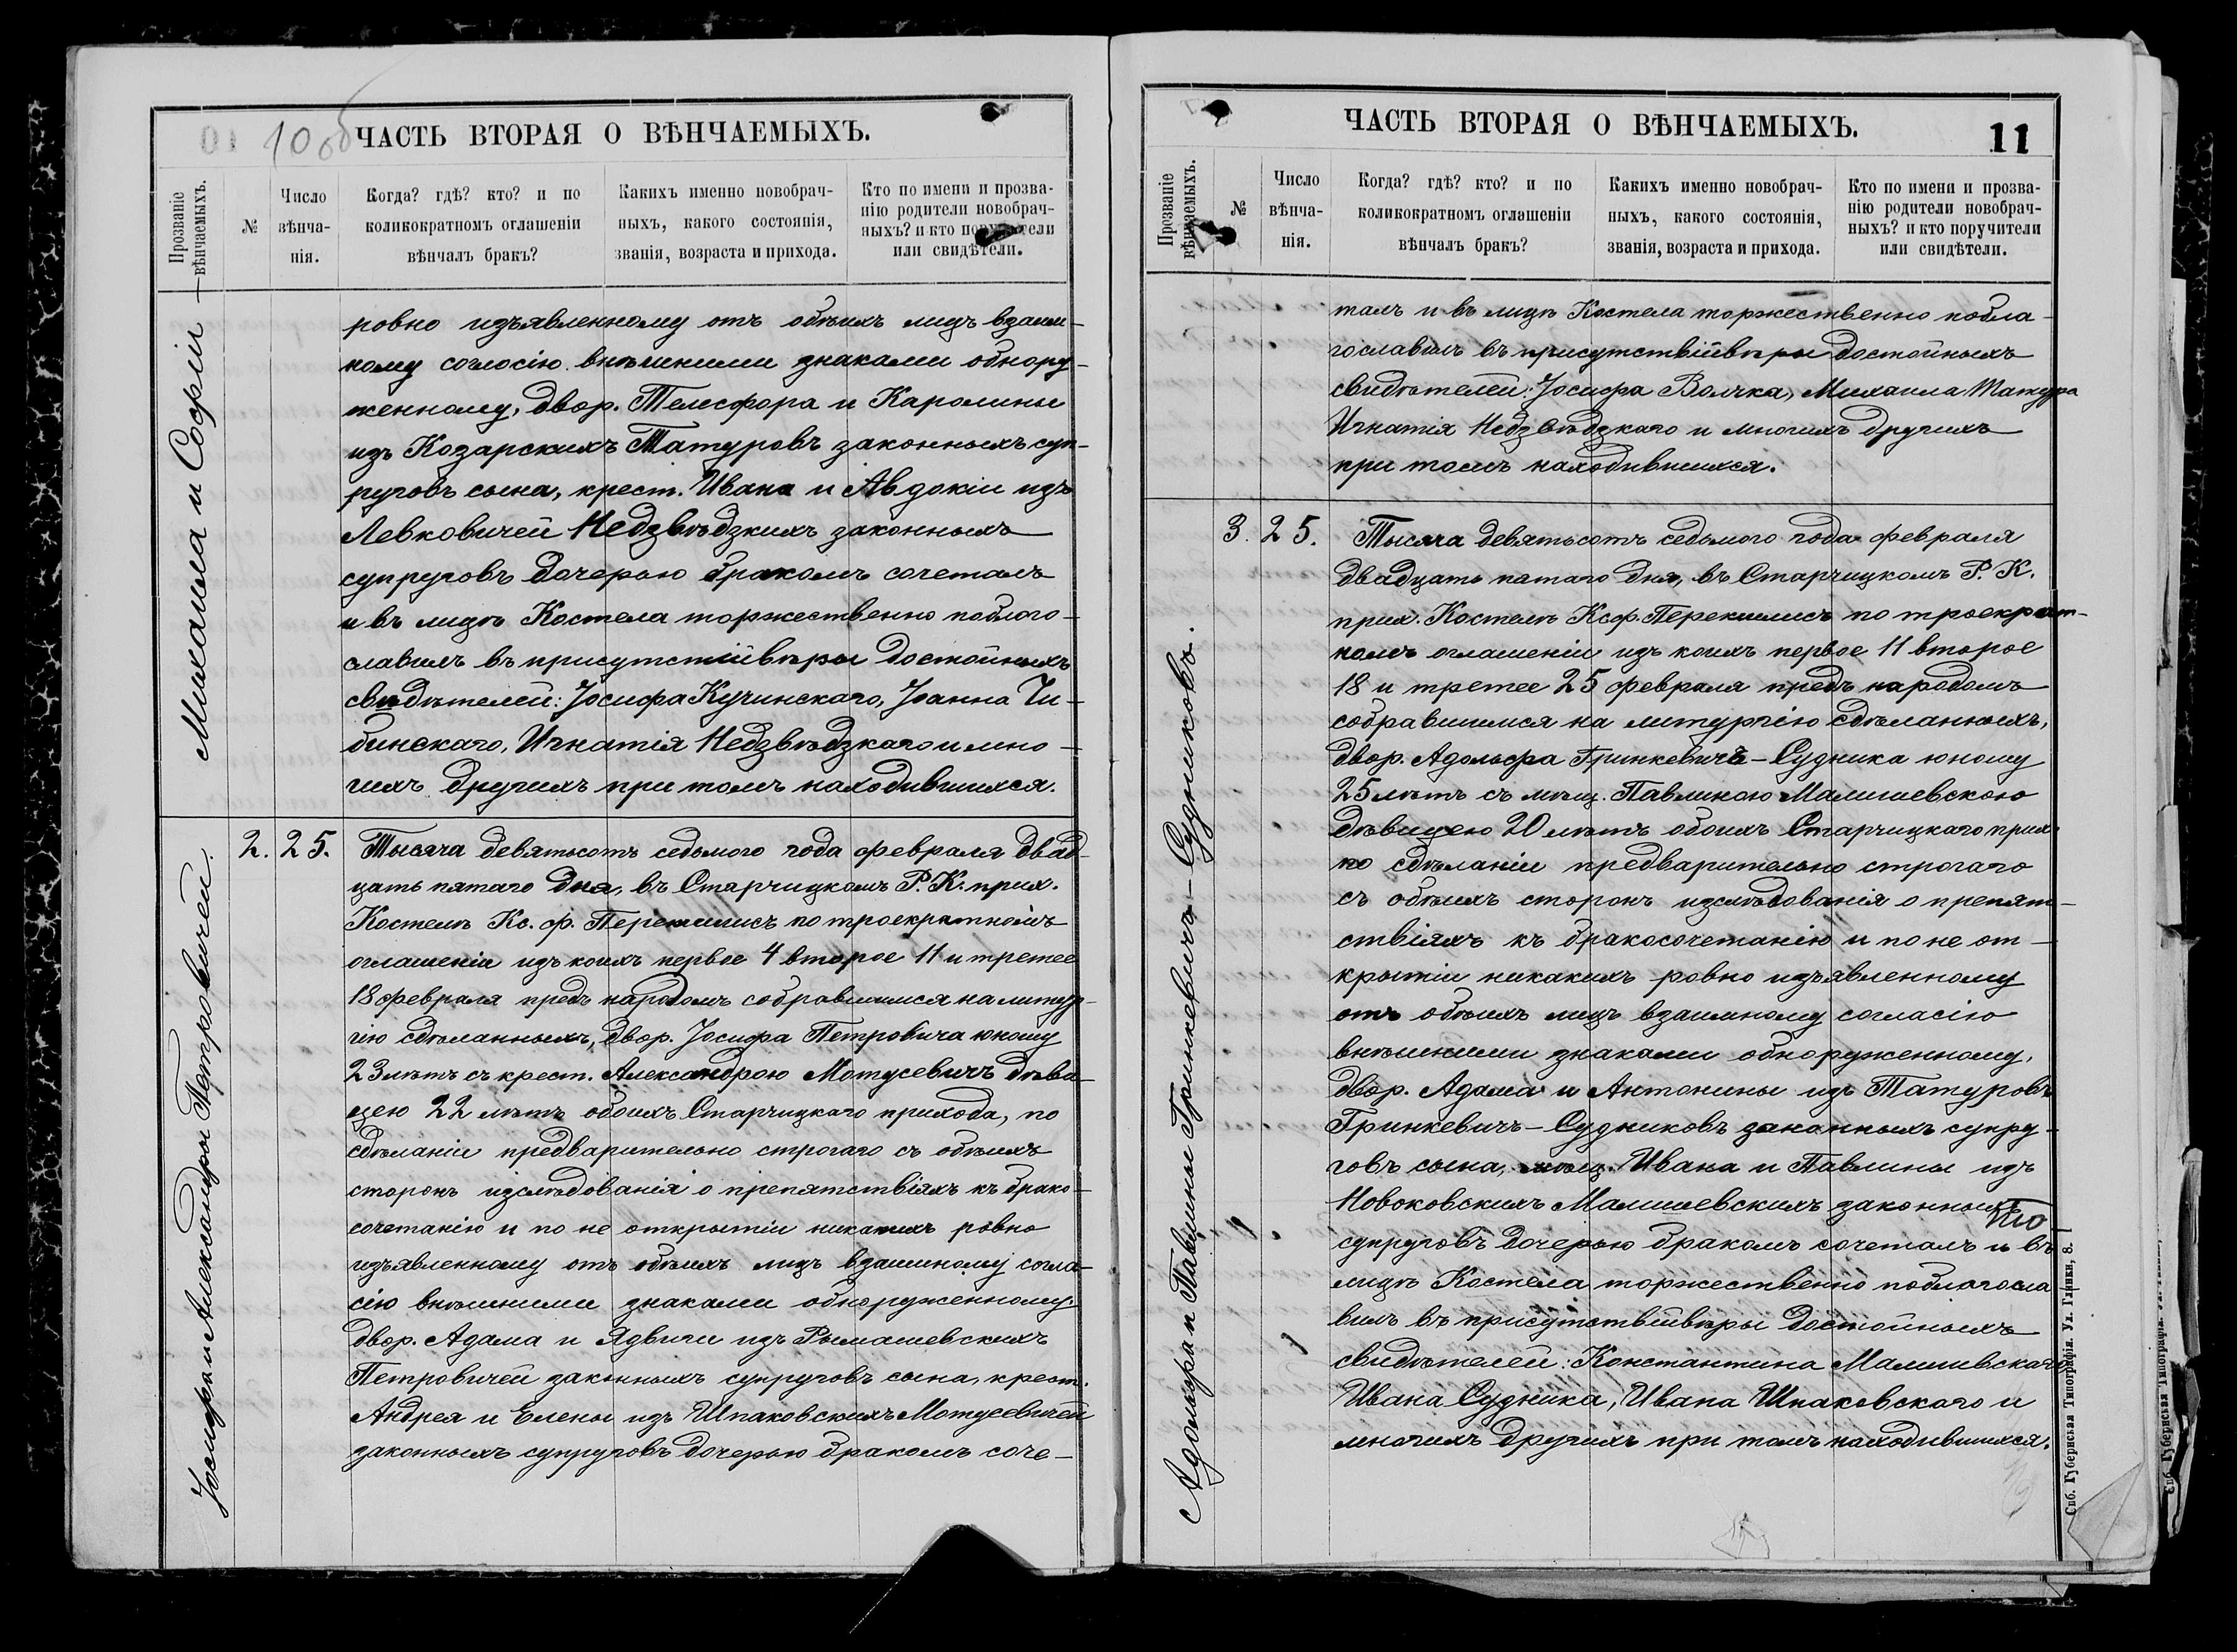 10 об
ЧАСТЬ ВТОРАЯ О ВѢНЧАЕМЫХЪ.
Прозваніе вѣнчаемыхъ.
№
Число вѣнча-нія.
Когда? гдѣ? кто? и по
коликократномъ оглашеніи
вѣнчалъ бракъ?
Какихъ именно новобрач-
ныхъ, какого состоянія,
званія, возраста и прихода.
Кто по имени и прозва-
нію родители новобрач-
ныхъ? и кто поручители
или свидѣтели.
Михаила и Софіи —
ровно изъявленному отъ обѣихъ лицъ взаим-
ному соглосію внѣшними знаками обнору-
женному, двор. Телесфора и Каролины
изъ Козарскихъ Татуровъ законныхъ суп-
руговъ сына, крест. Ивана и Авдокіи изъ
Левковичей Недзвѣдзкихъ законныхъ
супруговъ дочерью бракомъ сочеталъ
и въ лицѣ Костела торжественно поблаго-
славилъ въ присутстіи вѣры достойныхъ
свидѣтелей: Іосифа Кучинскаго, Іоанна Чи-
бинскаго, Игнатія Недзвѣдзкаго и мно-
гихъ другихъ при томъ находившихся.
Іосифа и Александры Петровичей.
2. 25. Тысяча девятьсотъ седьмого года февраля двад-
цать пятаго дня, въ Старчицкомъ Р. К. прих.
Костелѣ Кс. ф. Перекшлисъ по троекратномъ
оглашеніи изъ коихъ первое 4 второе 11 и третее
18 февраля предъ народомъ собравшимся на литур-
гію сдѣланныхъ, двор. Іосифа Петровича юношу
23 лѣтъ съ крест. Александрою Мотусевичъ дѣви-
цею 22 лѣтъ обоихъ Старчицкаго прихода, по
сдѣланіи предварительно строгаго съ обѣихъ
сторонъ изслѣдованія о препятствіяхъ къ брако-
сочетанію и по не открытіи никакихъ ровно
изъявленному отъ обѣихъ лицъ взаимному согла-
сію внѣшними знаками обноруженному,
двор. Адама и Ядвиги изъ Рымашевскихъ
Петровичей законныхъ супруговъ сына, крест.
Андрея и Елены изъ Шпаковскихъ Мотусевичей
законныхъ супруговъ дочерью бракомъ соче-
ЧАСТЬ ВТОРАЯ О ВѢНЧАЕМЫХЪ.
11
Прозваніе вѣнчаемыхъ.
№
Число вѣнча-нія.
Когда? гдѣ? кто? и по
коликократномъ оглашеніи
вѣнчалъ бракъ?
Какихъ именно новобрач-
ныхъ, какого состоянія,
званія, возраста и прихода.
Кто по имени и прозва-
нію родители новобрач-
ныхъ? и кто поручители
или свидѣтели.
талъ и въ лицѣ Костела торжественно побла-
гославилъ въ присутствіи вѣры достойныхъ
свидѣтелей: Іосифа Волчка, Михаила Татура
Игнатія Недзвѣдзкаго и многихъ другихъ
при томъ находившихся.
Адольфа и Павлины Гринкевичъ-Судниковъ.
3. 25. Тысяча девятьсотъ седьмого года февраля
двадцать пятаго дня, въ Старчицкомъ Р. К.
прих. Костелѣ Кс. ф. Перекшлисъ по троекрат-
номъ оглашеніи изъ коихъ первое 11 второе
18 и третее 25 февраля предъ народомъ
собравшимся на литургію сдѣланныхъ,
двор. Адольфа Гринкевича-Судника юношу
25 лѣтъ съ мѣщ. Павлиною Малишевскою
дѣвицею 20 лѣтъ обоихъ Старчицкаго прих.
по сдѣланіи предварительно строгаго
съ обѣихъ сторонъ изслѣдованія о препят-
ствіяхъ къ бракосочетанію и по не от-
крытіи никакихъ ровно изъявленному
отъ обѣихъ лицъ взаимному согласію
внѣшними знаками обноруженному,
двор. Адама и Антонины изъ Татуровъ
Гринкевичъ-Судниковъ законныхъ супру-
говъ сына, мѣщ. Ивана и Павлины изъ
Новоковскихъ Малишевскихъ законныхъ
супруговъ дочерью бракомъ сочеталъ и въ
лицѣ Костела торжественно поблагосла
вилъ въ присутствіи вѣры достойныхъ
свидѣтелей: Константина Малишвскаго
Ивана Судника, Ивана Шпаковскаго и
многихъ другихъ при томъ находившихся.
Спб. Губернская Типографія. Ул. Глинки, 8.